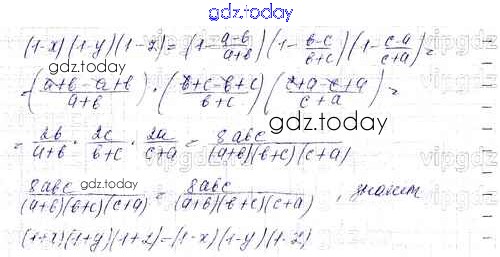 gdz.today
(1-x)(1-y)(1-z) = (1-\frac{a-b}{a+b})(1-\frac{b-c}{b+c})(1-\frac{c-a}{c+a}) =
gdz.today
= (\frac{a+b-a+b}{a+b}) · (\frac{b+c-b+c}{b+c}) (\frac{c+a-c+a}{c+a}) =
gdz.today
= \frac{2b}{a+b} · \frac{2c}{b+c} · \frac{2a}{c+a} = \frac{8abc}{(a+b)(b+c)(c+a)}
gdz.today
\frac{8abc}{(a+b)(b+c)(c+a)} = \frac{8abc}{(a+b)(b+c)(c+a)}, значит
(1+x)(1+y)(1+z)=(1-x)(1-y)(1-z)